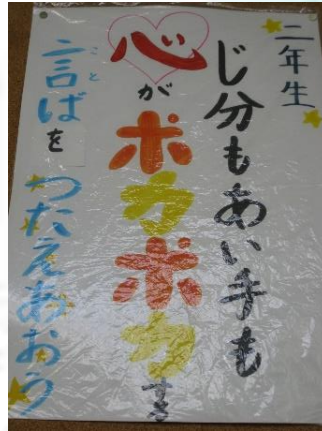 二年生
じ分もあい手も
心がポカポカする
言ばをつたえあおう
こと